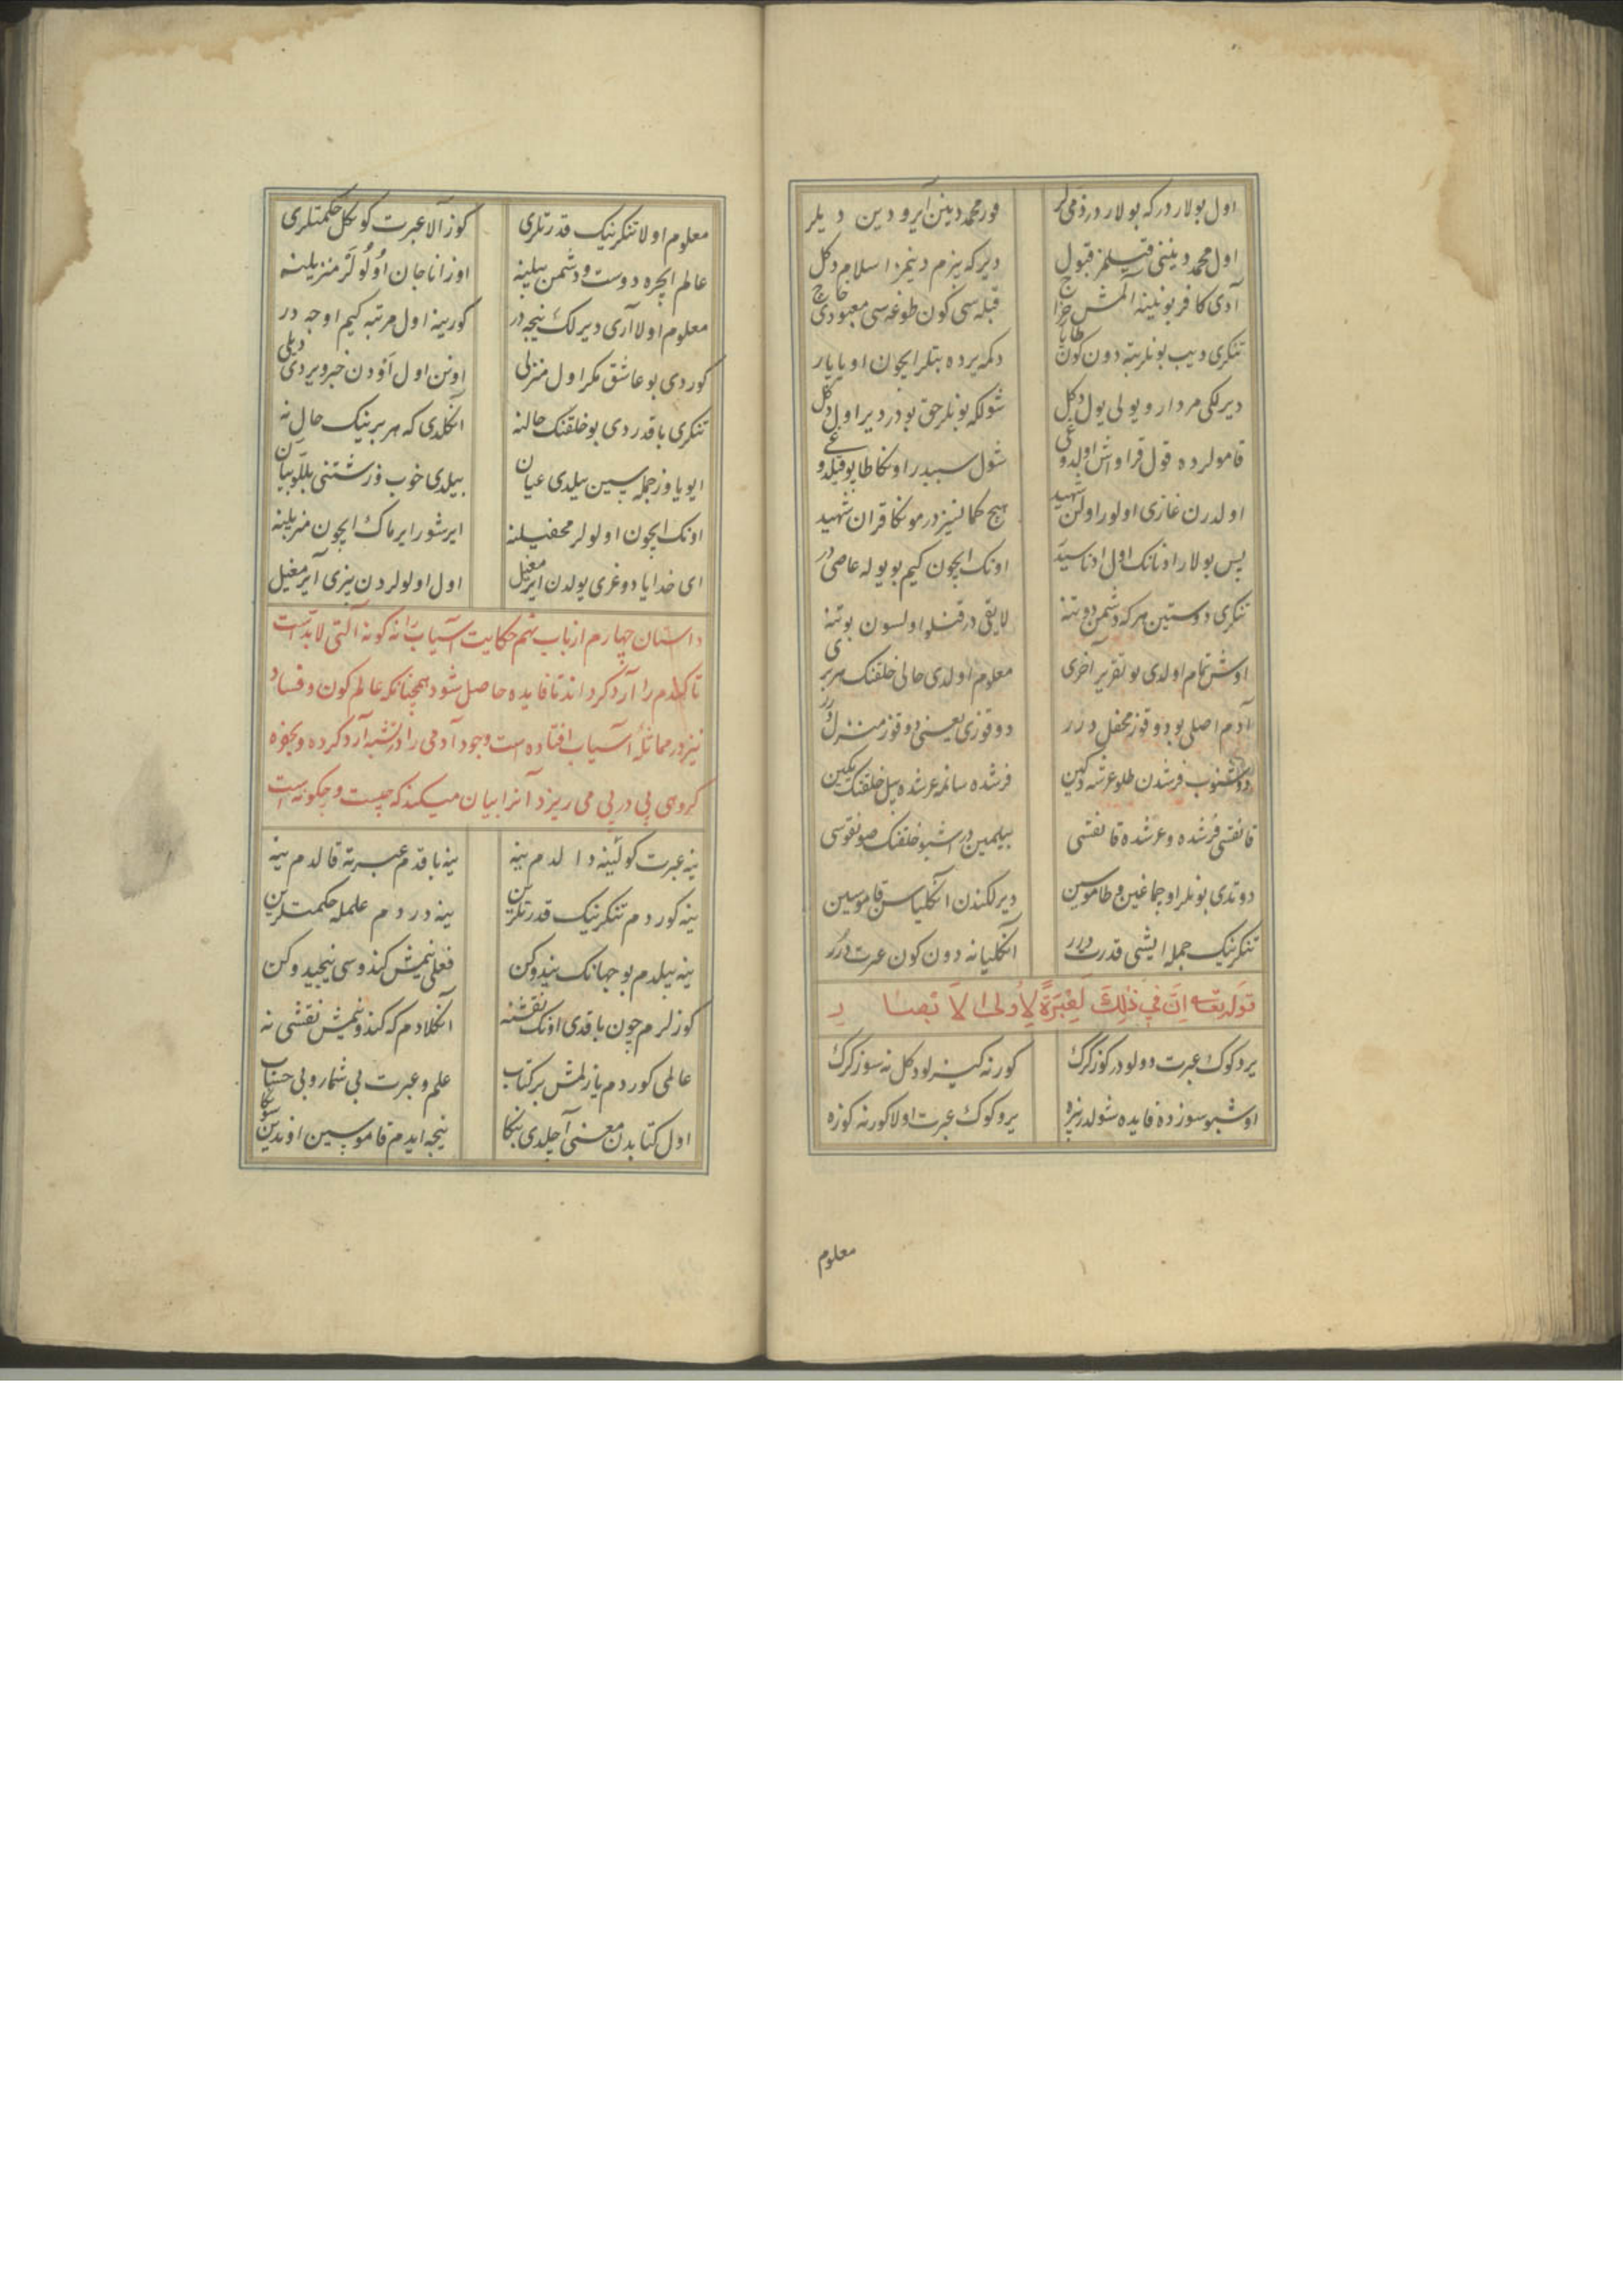 اول بولار درکه بولار در ذمی لر قور محمد دینن آیرو دین دیلر
اول محمد دیننی قیلمز قبول دیر که بزم دینمز اسلام دکل
آدی کافر بونلینه آلمش خراج قبله سی کون طوغه سی معبودی خاچ
تنکری دیب بونلر بته دون کون طاپار دکمه یرده بتلر ایچون او یاپار
دیرلکی مردار و یولی یول دکل شولکه بونلر حق بودر دیر اول دکل
قامولرده قول قراوش اولدوغی شول سببدر اونکا طاپو قیلدوغی
اولدرن غازی اولور اولن شهید هیچ کمانسیز در مونکا قران شهید
پس بولار اونانک اول ادناسیدر اونک ایچون کیم بو یوله عاصی در
تنکری دوستین هر که دشمن دوتنه لایقی در قتلو اولسون بوتنه
اوش تمام اولدی بو تقریر آخری معلوم اولدی حالی خلقنک هر بری
آدم اصلی بو دوقوز محفل درر دوقوزی یعنی دوقوز منزل درر
فرشدن طلو عرشه دکین فرشده سانمه عرشده بیل خلقنک یکین
قانقسی فرشده و عرشده قانقسی بیلمین در اشبو خلقنک صونقوسی
دوتدی بونلر اوچماغین و طاموسین دیرلکندن آنکلیاسن قاموسین
تنکرینک جمله ایشی قدرت درر آنکلیانه دون کون عبرت درر
قوله تعالی اِنَّ فی ذٰلِكَ لَعِبْرَةً لِاُولِی الاَبصار
یر و کوک عبرت دولودر کوز کرک کورنه کیزلو دکل نه سوز کرک
اوشبو سوزده فایده شولدر بزه یر و کوک عبرت اولا کورنه کوزه
معلوم
معلوم اولا تنکرینک قدرتلری کوز آلا عبرت کوکل حکمتلری
عالم ایچره دوست و دشمن بیلینه اوزانا جان اولولر منزیلینه
معلوم اولا آری دیرلک نیجه در کورینه اول مرتبه کیم اوجه در
کوردی بو عاشق مکر اول منزلی اونن اول اودن خبر ویردی دیلی
تنکری باقدردی بو خلقنک حالنه آنکلدی که هر برینک حال نه
ایو یاوز جمله سین بیلدی عیان بیلدی خوب و زشتنی بللو بیان
اونک ایچون اولولر محفیلنه ایرشور ایرماک ایچون منزیلینه
ای خدایا دوغری یولدن ایرمغیل اول اولولردن بیزی آیرمغیل
داستان چهارم از باب نهم حکایت آسیاب را نه کونه آلتی لابدست
تا کندم را آرد کرداند تا فایده حاصل شود همچنانکه عالم کون و فساد
نیز در مماثلهٔ آسیاب افتاده است وجود آدمی را در شبه آرد کرده و بخوه
کروهی پی در پی می ریزد آنرا بیان میکند که چیست و چکونه است
ینه عبرت کولینه دالدم ینه ینه باقدم عبرته قالدم ینه
ینه کوردم تنکرینک قدرتلرین ینه دردم علمله حکمتلرین
ینه بیلدم بو جهانک بیندوکن فعلی نیمش کندوسی نیجیدوکن
کوزلرم چون باقدی اونک نقشنه آنکلادم که کندو نیمش نقشی نه
عالمی کوردم یازلمش بر کتاب علم و عبرت بی شمار و بی حساب
اول کتابدن معنی آچلدی بنکا نیجه ایدم قاموسین اوندین سنکا